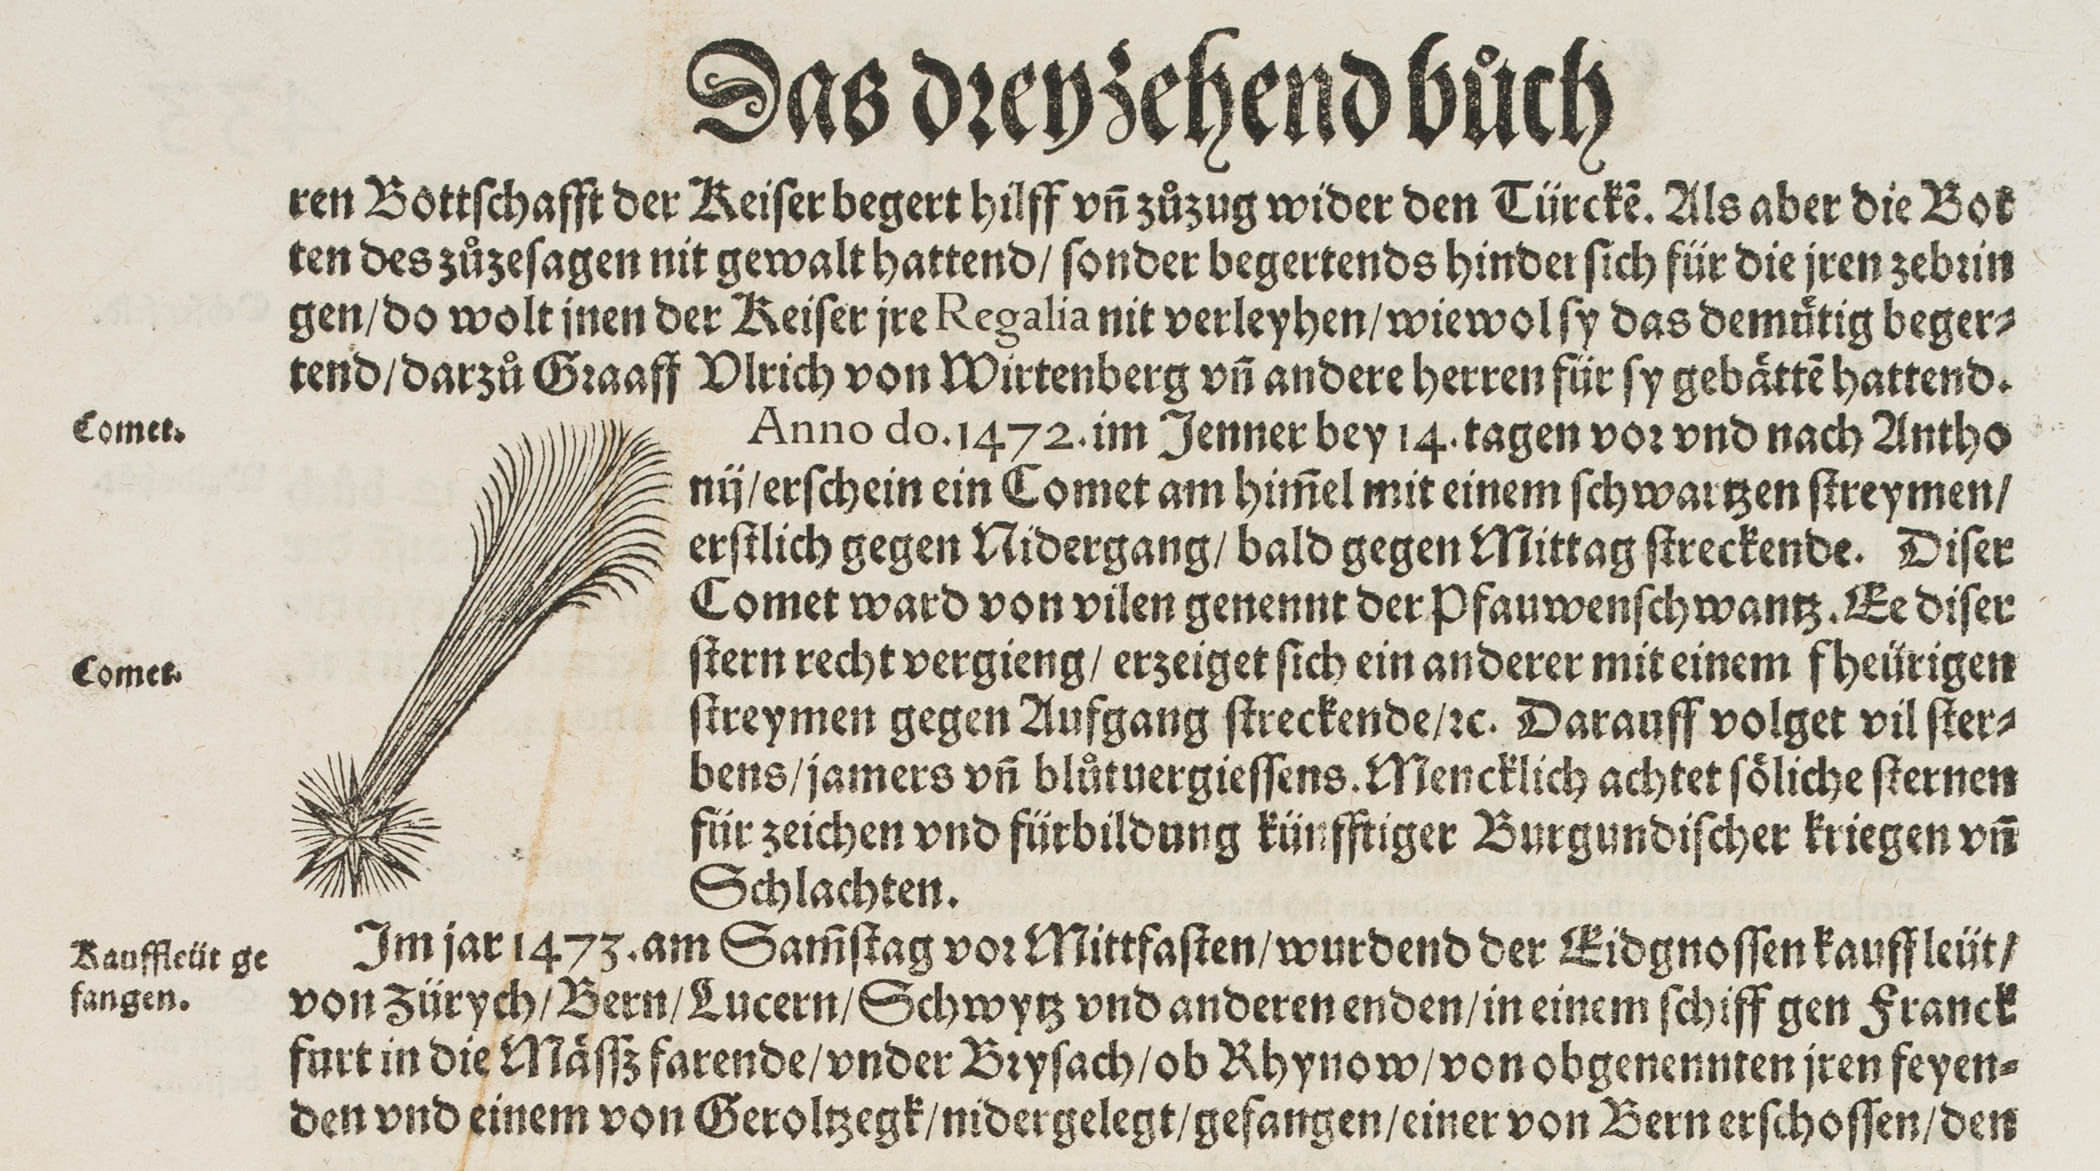 Das dreyzehend bůch
ren Bottſchafft der Keiſer begert hilff vn̄ zůzug wider den Türckē. Als aber die Bot
ten des zůzeſagen nit gewalt hattend/ ſonder begertends hinder ſich für die jren zebrin
gen/do wolt jnen der Keiſer jre Regalia nit verleyhen/wiewol ſy das demůtig beger⸗
tend/darzů Graaff Vlrich von Wirtenberg vn̄ andere herren für ſy gebättē hattend.
Comet.
Anno do.1472.im Jenner bey 14.tagen vor vnd nach Antho
nij/erſchein ein Comet am him̄el mit einem ſchwartzen ſtreymen/
erſtlich gegen Nidergang/ bald gegen Mittag ſtreckende. Diſer
Comet ward von vilen genennt der Pfauwenſchwantz.Ee diſer
Comet.
ſtern recht vergieng/ erzeiget ſich ein anderer mit einem fheürigen
ſtreymen gegen Aufgang ſtreckende/ꝛc. Darauff volget vil ſter⸗
bens/jamers vn̄ blůtuergieſſens.Mencklich achtet ſöliche ſternen
für zeichen vnd fürbildung künfftiger Burgundiſcher kriegen vn̄
Schlachten.
Kauffleüt ge
fangen.
Im jar 1473.am Sam̄ſtag vor Mittfaſten/wurdend der Eidgnoſſen kauffleüt/
von Zürych/Bern/Lucern/Schwytz vnd anderen enden/in einem ſchiff gen Franck
furt in die Mäſſz farende/vnder Bryſach/ob Rhynow/von obgenennten jren feyen⸗
den vnd einem von Geroltzegk/nidergelegt/gefangen/einer von Bern erſchoſſen/den